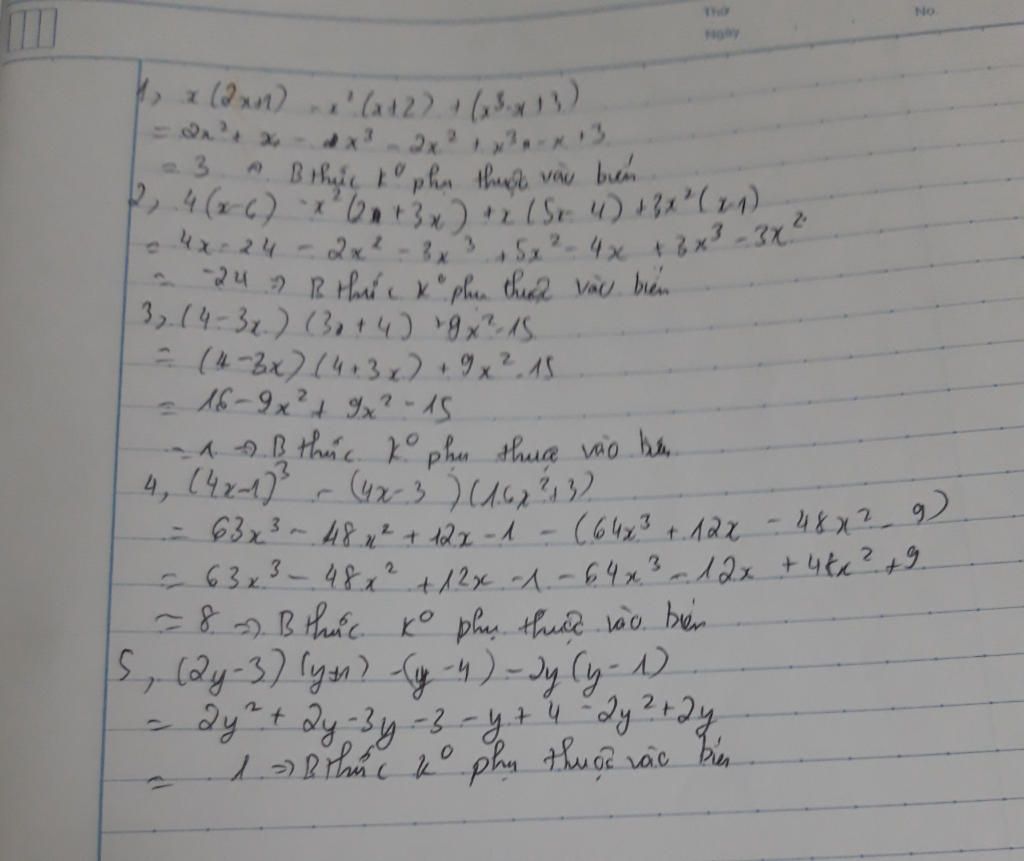 Thứ No.
Ngày
1, x(2x+1) - x²(x+2) + (x³-x+3)
= 2x² + x - x³ - 2x² + x³ - x + 3
= 3 => B thức k° phụ thuộc vào biến
2, 4(x-6) - x²(2 + 3x) + x(5x-4) + 3x²(x-1)
= 4x - 24 - 2x² - 3x³ + 5x² - 4x + 3x³ - 3x²
= -24 => B thức k° phụ thuộc vào biến
3, (4-3x)(3x+4) + 9x² - 15
= (4-3x)(4+3x) + 9x² - 15
= 16 - 9x² + 9x² - 15
= 1 => B thức k° phụ thuộc vào biến
4, (4x-1)³ - (4x-3)(16x²+3)
= 63x³ - 48x² + 12x - 1 - (64x³ + 12x - 48x² - 9)
= 63x³ - 48x² + 12x - 1 - 64x³ - 12x + 48x² + 9
= 8 => B thức k° phụ thuộc vào biến
5, (2y-3)(y+1) - (y-4) - 2y(y-1)
= 2y² + 2y - 3y - 3 - y + 4 - 2y² + 2y
= 1 => B thức k° phụ thuộc vào biến